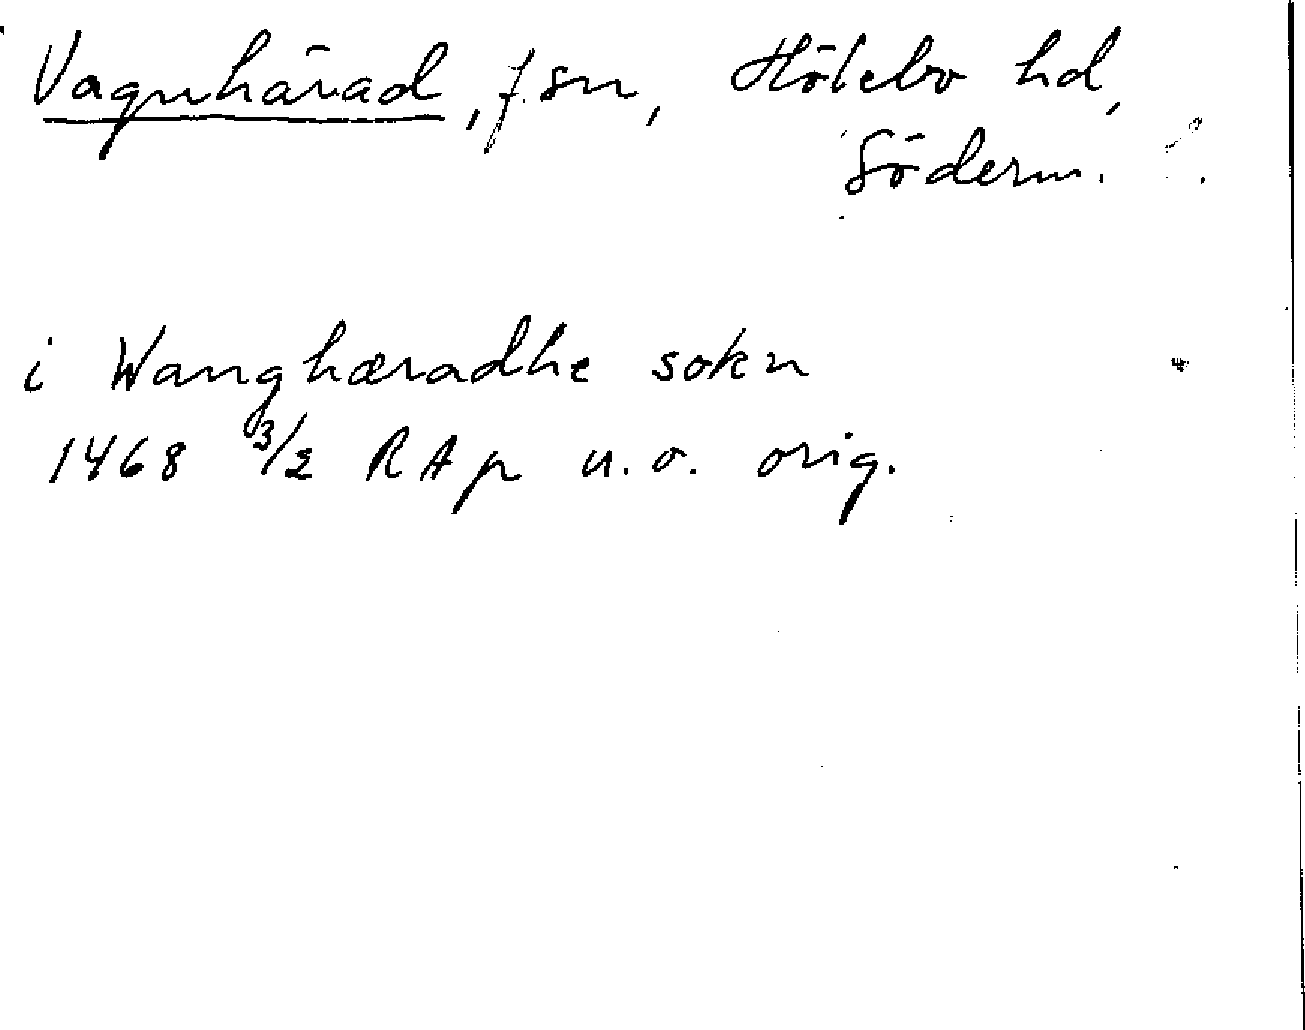 Vagnhärad, f. sn, Hölebo hd,
Söderm. l.
i Wanghæradhe sokn
1468 3/2 RAp u.o. orig.